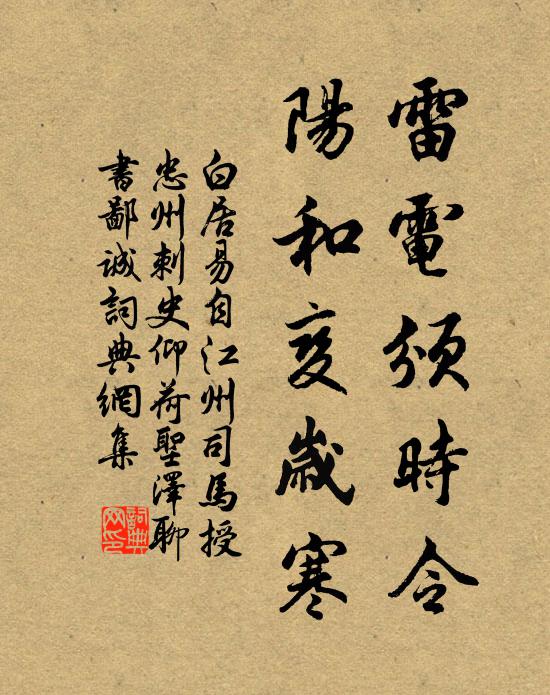 雷電頒時令
陽和変歲寒
白居易自江州司馬授
忠州刺史仰荷聖澤聊
書鄙诚詞典網集
詞典
网印